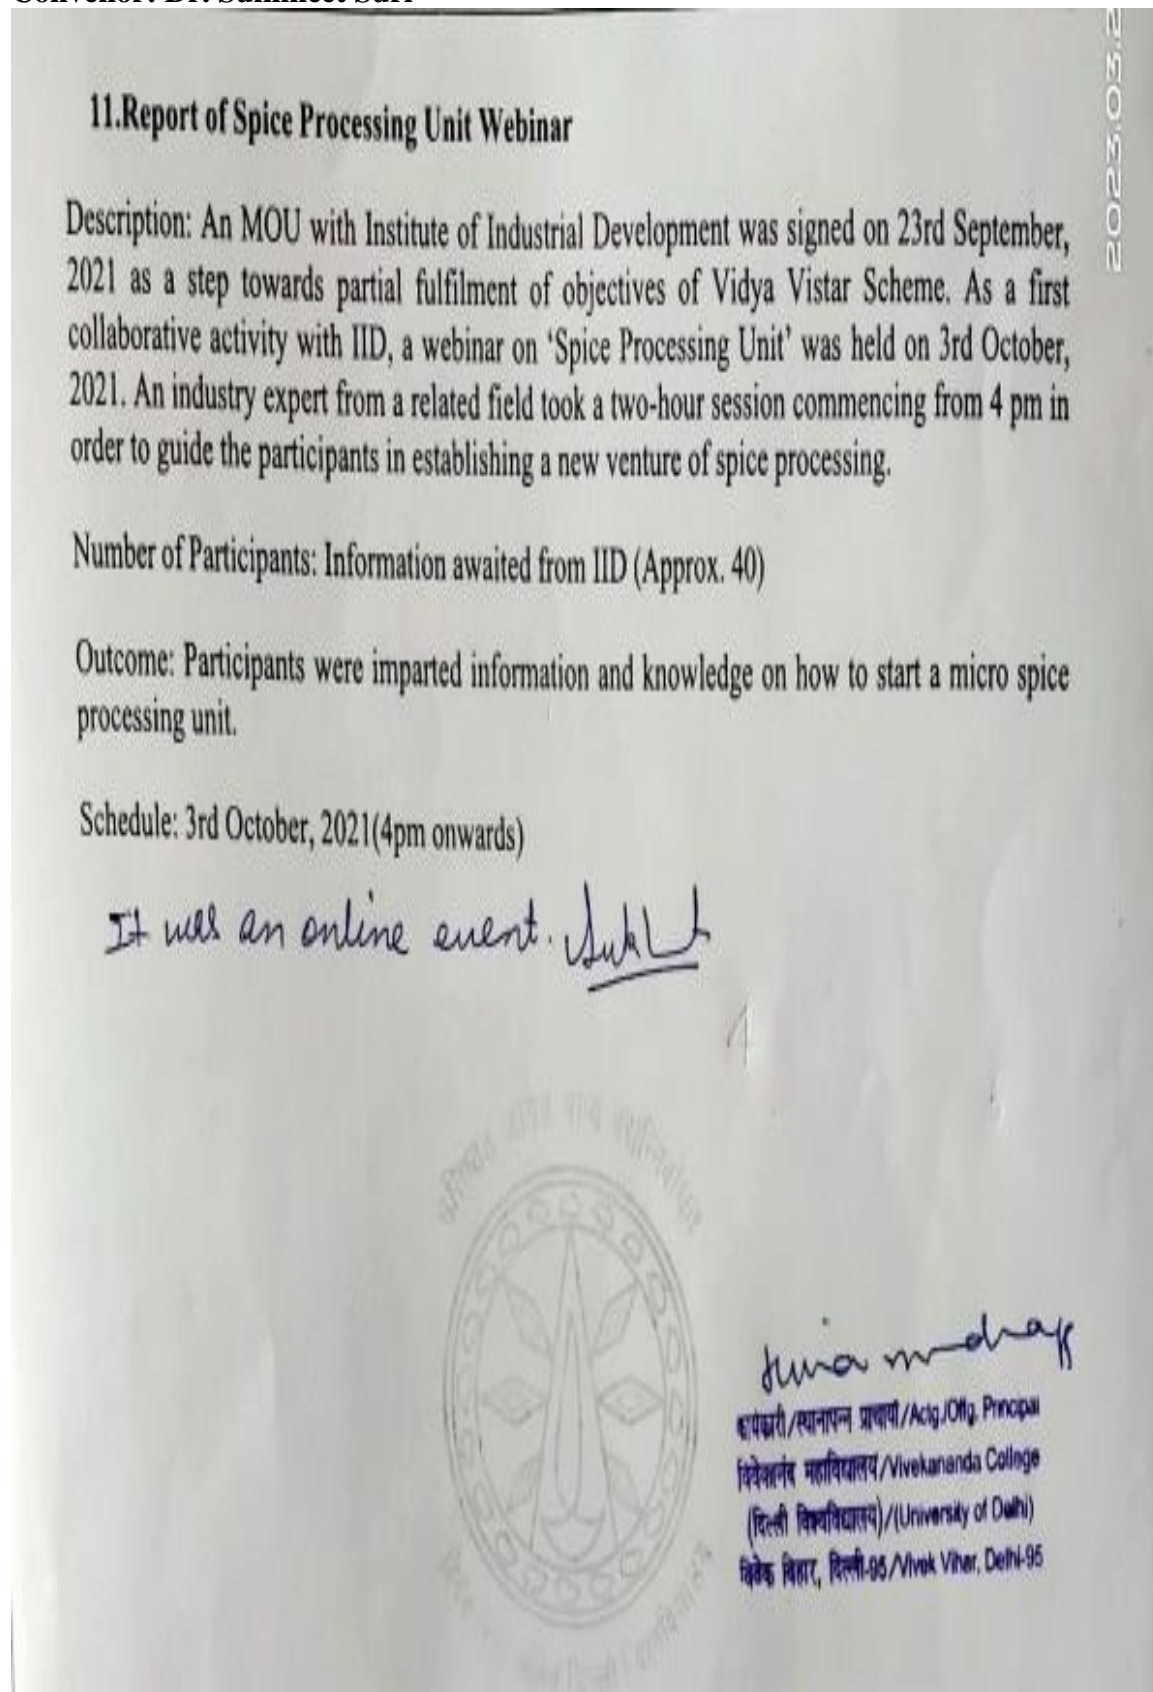 11.Report of Spice Processing Unit Webinar
Description: An MOU with Institute of Industrial Development was signed on 23rd September,
2021 as a step towards partial fulfilment of objectives of Vidya Vistar Scheme. As a first
collaborative activity with IID, a webinar on ‘Spice Processing Unit’ was held on 3rd October,
2021. An industry expert from a related field took a two-hour session commencing from 4 pm in
order to guide the participants in establishing a new venture of spice processing.
Number of Participants: Information awaited from IID (Approx. 40)
Outcome: Participants were imparted information and knowledge on how to start a micro spice
processing unit.
Schedule: 3rd October, 2021(4pm onwards)
It was an online event.
कार्यकारी/स्थानापन्न प्राचार्या/Actg./Offg. Principal
विवेकानंद महाविद्यालय/Vivekananda College
(दिल्ली विश्वविद्यालय)/(University of Delhi)
विवेक विहार, दिल्ली-95/Vivek Vihar, Delhi-95
2023.03.2